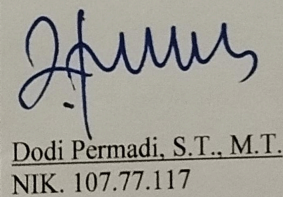 Dodi Permadi, S.T., M.T.
NIK. 107.77.117